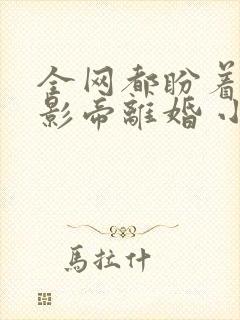 全网都盼着
影帝離婚小
馬拉什